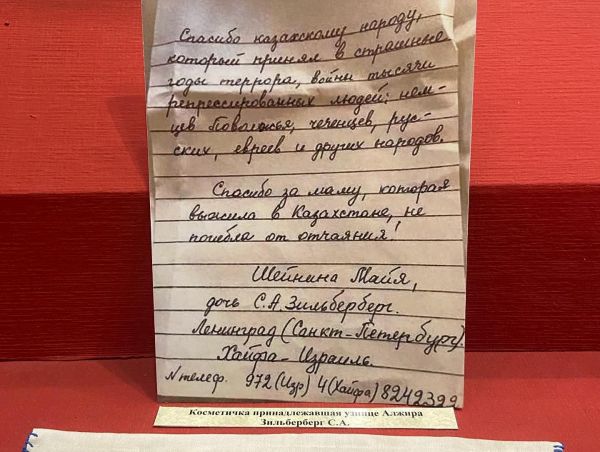 Спасибо казахскому народу,
который принял в страшные
годы террора, войны тысячи
репрессированных людей: нем-
цев Поволжья, чеченцев, рус-
ских, евреев и других народов.
Спасибо за маму, которая
выжила в Казахстане, не
погибла от отчаяния!
Шейнина Майя,
дочь С.А.Зильберберг.
Ленинград (Санкт-Петербург).
Хайфа - Израиль.
N телеф. 972 (Изр) 4 (Хайфа) 8242399
Косметичка принадлежавшая узнице Алжира
Зильберберг С.А.